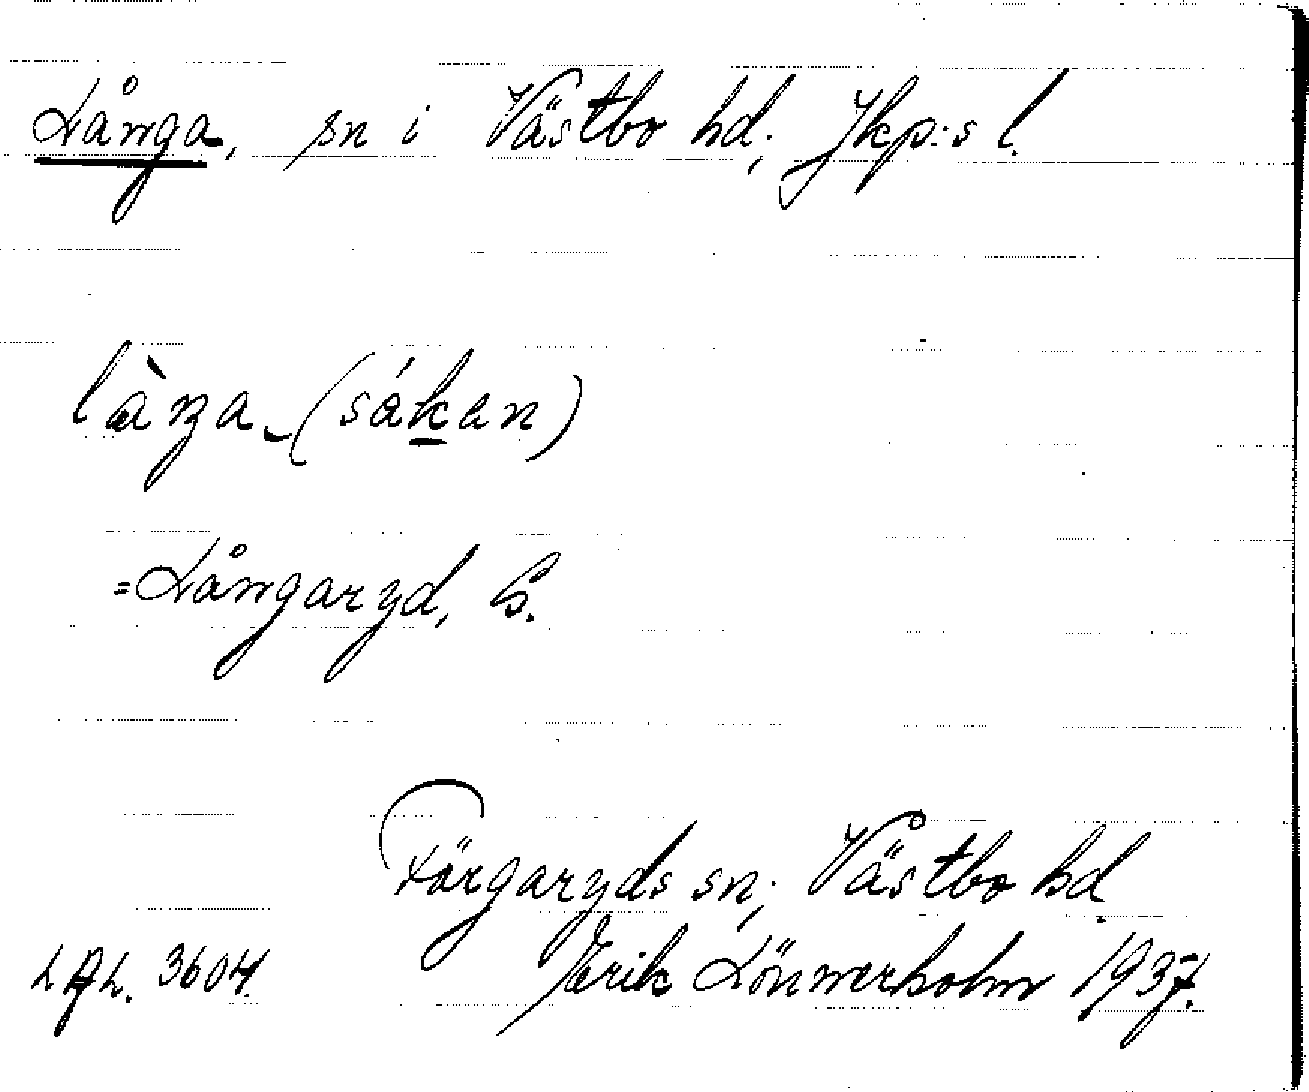 Långa, sn i Västbo hd; Jkp:s l.
làŋa-(sák̲an)
=Långaryd, S.
Färgaryds sn; Västbo hd
LAL. 3604. Erik Lönnerholm 1937.